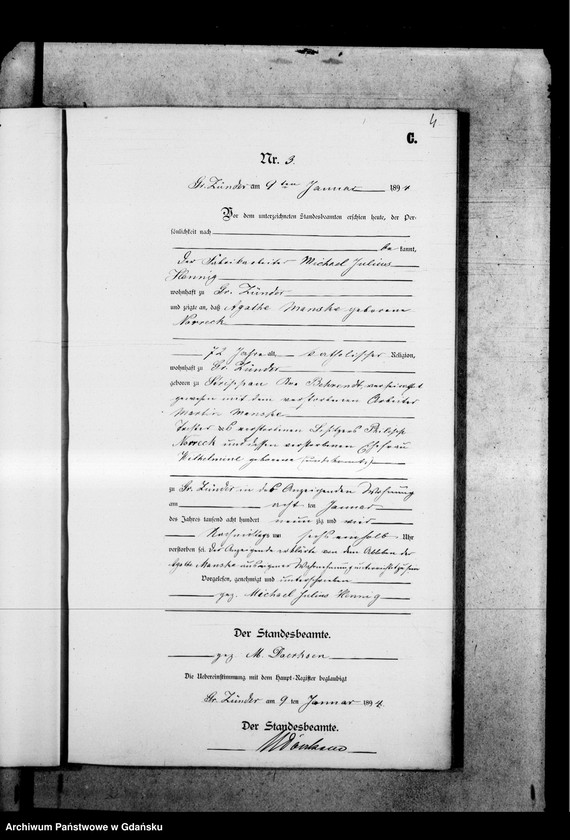 4
C.
Nr. 3.
Gr. Zünder am 9 ten Januar 1894
Vor dem unterzeichneten Standesbeamten erschien heute, der Per-
sönlichkeit nach
be kannt,
der Fabrikarbeiter Michael Julius
Hennig
wohnhaft zu Gr. Zünder
und zeigte an, daß Agathe Manske geborene
Norreck
72 Jahre katholischer Religion,
wohnhaft zu Gr. Zünder
geboren zu Strippau Kre Behrendt, verheirathet
gewesen mit dem verstorbenen Arbeiter
Martin Manske
Tochter des verstorbenen Philipp
Norreck und dessen verstorbenen Ehefrau
Wilhelmine geborene (unbekannt)
zu Gr. Zünder in des Anzeigenden Wohnung
am acht ten Januar
des Jahres tausend acht hundert neun zig und vier
Nachmittags um sechs einhalb Uhr
verstorben sei. Der Anzeigende erklärte von dem Ableben der
Agathe Manske aus eigener Wahrnehmung unterrichtet zu sein
Vorgelesen, genehmigt und unterschrieben
gez. Michael Julius Hennig
Der Standesbeamte.
gez. M. Doerksen
Die Uebereinstimmung mit dem Haupt-Register beglaubigt
Gr. Zünder am 9 ten Januar 1894.
Der Standesbeamte.
MDoerksen
Archiwum Państwowe w Gdańsku